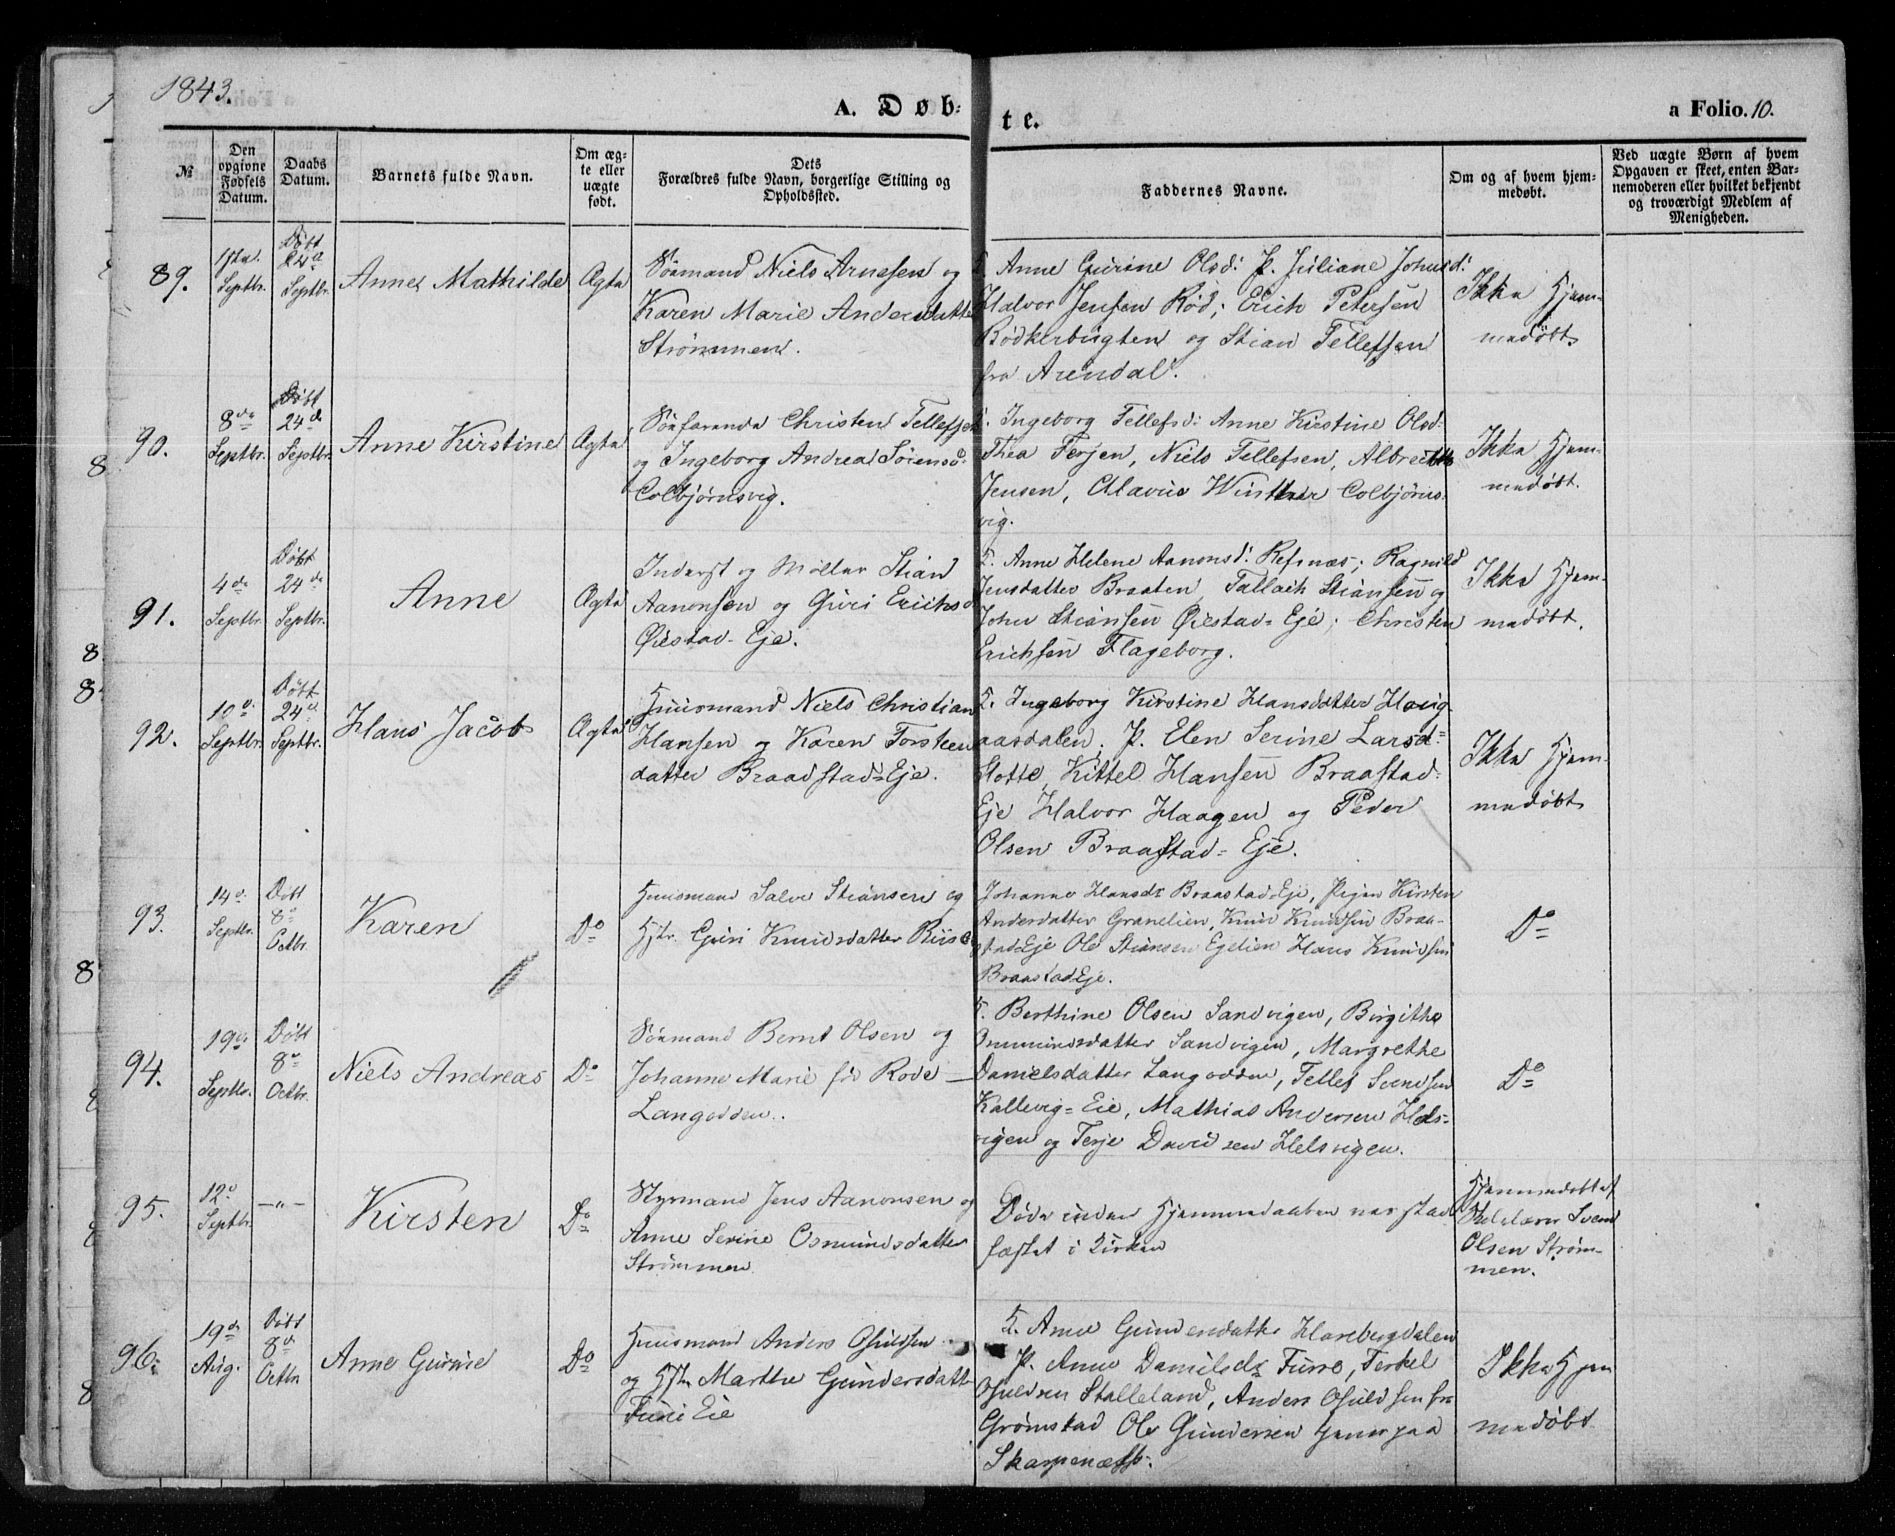 1843.
A. Døb-
te.
a Folio. 10.
№
Den opgivne Fødsels Datum.
Daabs Datum.
Barnets fulde Navn.
Om ægte eller uægte født.
Dets Forældres fulde Navn, borgerlige Stilling og Opholdssted.
Faddernes Navne.
Om og af hvem hjemmedøbt.
Ved uægte Børn af hvem Opgaven er skeet, enten Barnemoderen eller hvilket bekjendt og troværdigt Medlem af Menigheden.
89.
Septbr.
Døbt
24de
Septbr.
Anne Mathilde
Ægte
Sømand Niels Arnesen og
Karen Marie Andersdatter
Strømmen.
F. Anne Gurine Olsd: P. Juliane Johnsd:
Halvor Jensen Rød; Erich Petersen
Bødkerbugten og Stian Tellefsen
fra Arendal.
Ikke Hjem-
medøbt
90.
8de
Septbr.
Døbt
24de
Septbr.
Anne Kirstine
Ægte
Søefarende Christen Tellefsen
og Ingeborg Andrea Sørensd:
Colbjørnsvig.
F. Ingeborg Tellefsd: Anne Kirstine Olsd:
Thea Terjen, Niels Tellefsen, Albrecth
Jensen, Olavus Winther Colbjørns-
vig.
Ikke Hjem-
medøbt.
91.
4de
Septbr.
Døbt
24de
Septbr.
Anne
Ægte
Inderst og Møller Stian
Aanonsen og Guri Erichsd
Øiestad-Eje.
F. Anne Helene Aanonsd: Refsnæs; Ragnild
Jensdatter Braaten, Tallach Stiansen og
John Stiansen Øiestad-Eje; Christen
Erichsen Flageborg.
Ikke Hjem-
medøbt.
92.
10de
Septbr.
Døbt
24de
Septbr.
Hans Jacob
Ægte
Huusmand Niels Christian
Hansen og Karen Torsteen
datter Braadstad-Eje.
F. Ingeborg Kirstine Hansdatter Houg
aasdalen. P. Elen Serine Larsd-
Slotte, Kittel Hansen Braastad-
Eje Halvor Haagen og Peder
Olsen Braastad-Eje.
Ikke Hjem-
medøbt
93.
14de
Septbr.
Døbt
8de
Octbr.
Karen
Do
Huusmand Salve Stiansen og
Hstr. Guri Knudsdatter Riise
Johanne Hansdr Braastad-Eje, Pigen Kirsten
Andersdatter Granelien, Knud Knudsen Braa-
stad-Eje Ole Stiansen Egelien Hans Knudsen
Braastad Eje.
Do
94.
19de
Septbr.
Døbt
8de
Octbr.
Niels Andreas
Do
Sømand Bernt Olsen og
Johanne Marie fød Rode —
Langodden.
F. Berthine Olsen Sandvigen, Birgithe
Ommundsdatter Sandvigen, Margrethe
Danielsdatter Langodden, Tellef Svendsen
Kallevig-Eie, Mathias Andersen Hels-
vigen og Terje Davidsen Helsvigen.
Do
95.
12de
Septbr.
—"—
Kirsten
Do
Styrmand Jens Aanonsen og
Anne Serine Osmundsdatter
Strømmen
Døde inden Hjemmedaaben var stad
fæstet i Kirken
Hjemmedøbt af
Skolelærer Svend
Olsen Strøm-
men.
96.
19de
Aug.
Døbt
8de
Octbr
Anne Gurine
Do
Huusmand Anders Osuldsen
og Hstr Marthe Gundersdatter
Furre Eie
F. Anne Gundersdatter Harebugdalen
P. Anne Danielsdr Furre, Terkel
Osuldsen Stalleland, Anders Osuldsen fra
Grømstad Ole Gundersen paa
Skarpenæss.
Ikke Hjem
medøbt